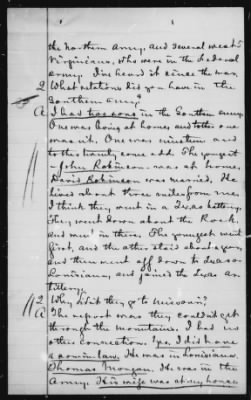 the Northern army, and several weak
Virginians, who were in the Federal
army. I've heard it since the war.
Q What relations did you have in the
Southern army?
A I had two sons in the Southern army.
One was living at home, and other one
was not. One was nineteen and
to this twenty some odd. The youngest
John Robinson was at home.
David Robinson was married. He
lived about three miles from me.
I think they went in a Texas battery.
They went down about the Rock,
and went in there. The youngest went
first, and the other staid about a year,
and then went off down to Texas or
Louisiana, and joined the Texas ar-
tillery.
Q Why didn't they go to Missouri?
A The report was they couldn't get
through the mountains. I had no
other connections. Yes, I did have
a son in law. He was in Louisiana.
Thomas Morgan. He was in the
Army. His wife was at my house